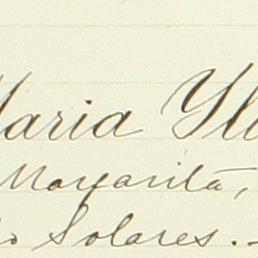 Maria Yl
Margarita,
Solares.